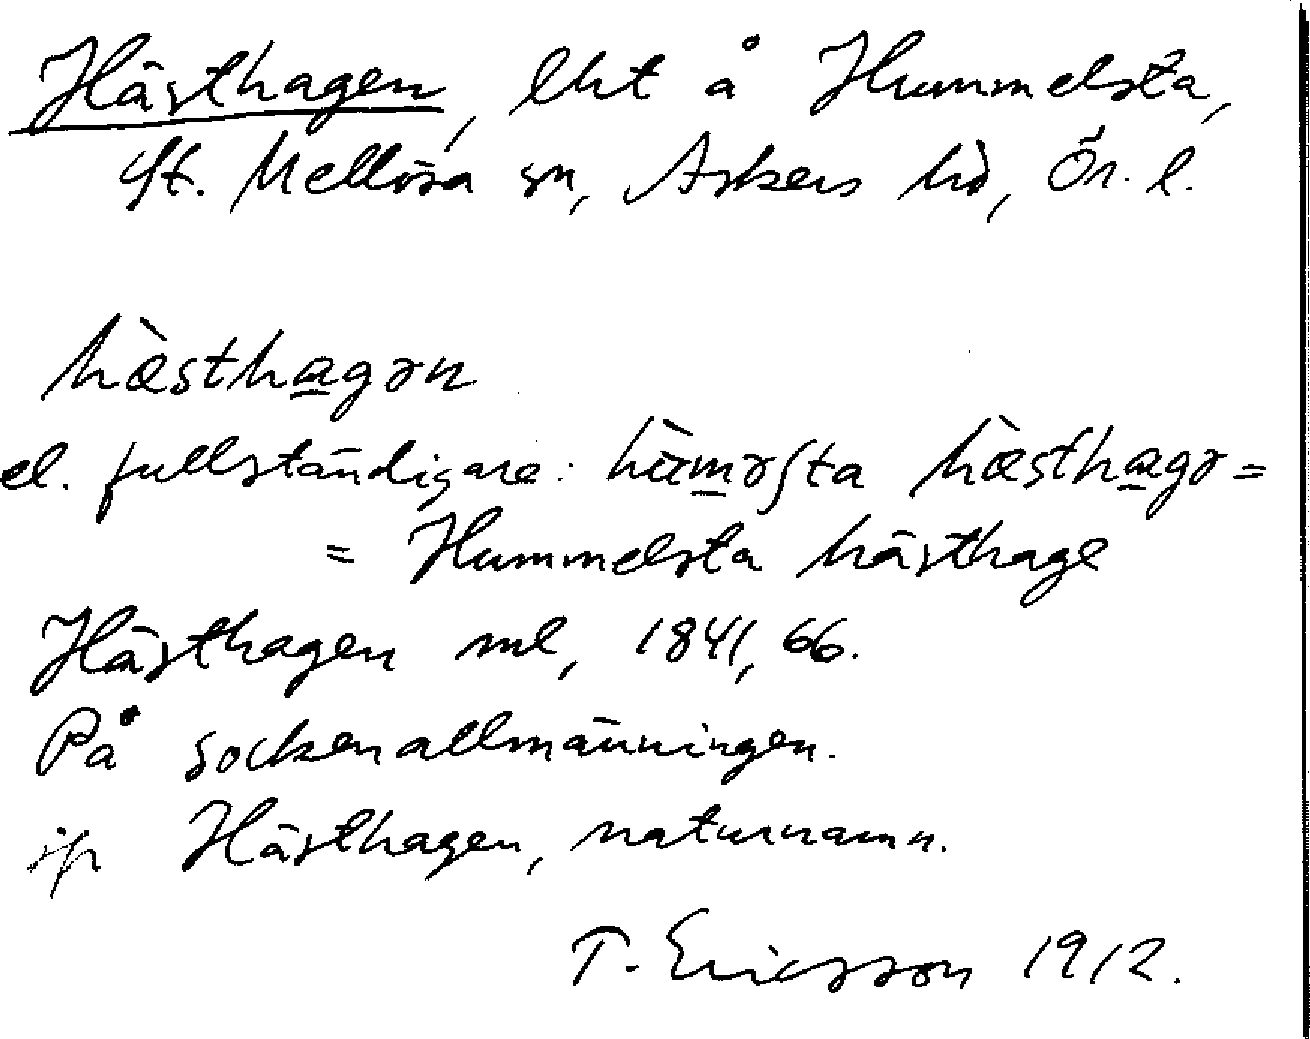 Hästhagen, lht å Hummelsta,
St. Mellösa sn, Askers hd, Ör. l.
hæ̀sthagən
el. fullständigare: hùməʃta hæ̀sthagə =
= Hummelsta hästhage
Hästhagen ml, 1841, 66.
På sockenallmänningen.
Hästhagen, naturnamn.
T. Ericsson 1912.